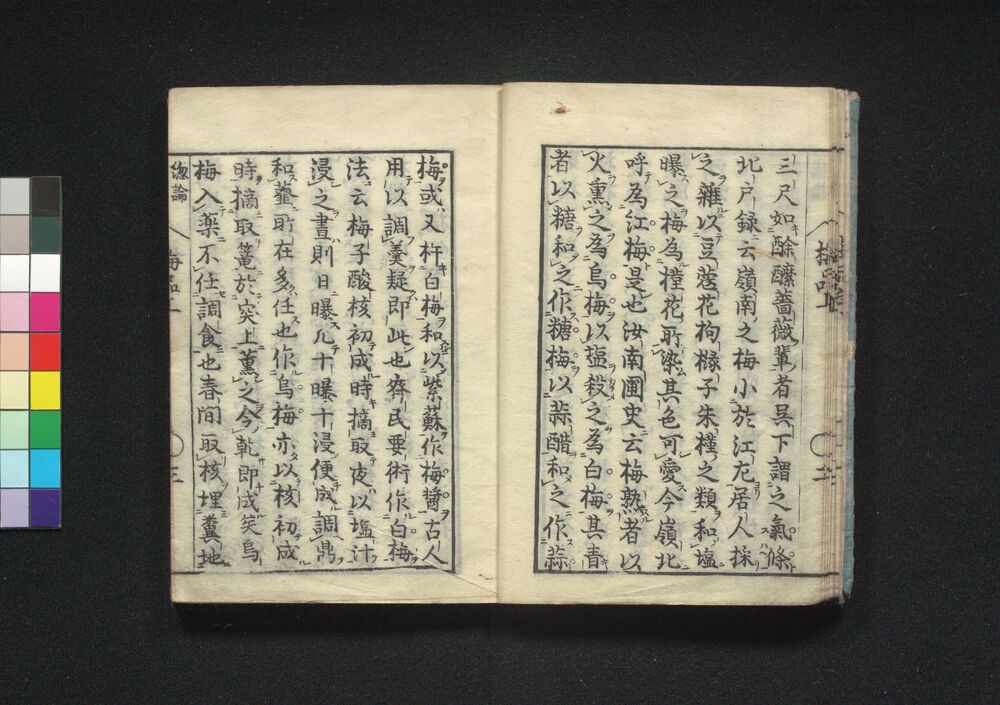 三尺如酴醿薔薇輩者吴下謂之氣條
北戸録云嶺南之梅小於江左居人採
之雜以豆蔲花枸櫞子朱槿之類和塩
曝之梅為槿花所染其色可愛今嶺北
呼為江梅是也汝南圃史云梅熟者以
火熏之為烏梅以塩殺之為白梅其青
者以糖和之作糖梅以蒜醋和之作蒜
梅或又杵白梅和以紫蘇作梅醬古人
用以調羹疑即此也齊民要術作白梅
法云梅子酸核初成時摘取夜以塩汁
浸之晝則日曝凡十曝十浸便成調鼎
和虀所在多任也作烏梅亦以核初成
時摘取篭於突上薫之令乾即成矣烏
梅入薬不任調食也春間取核埋糞地
総論
梅品
三